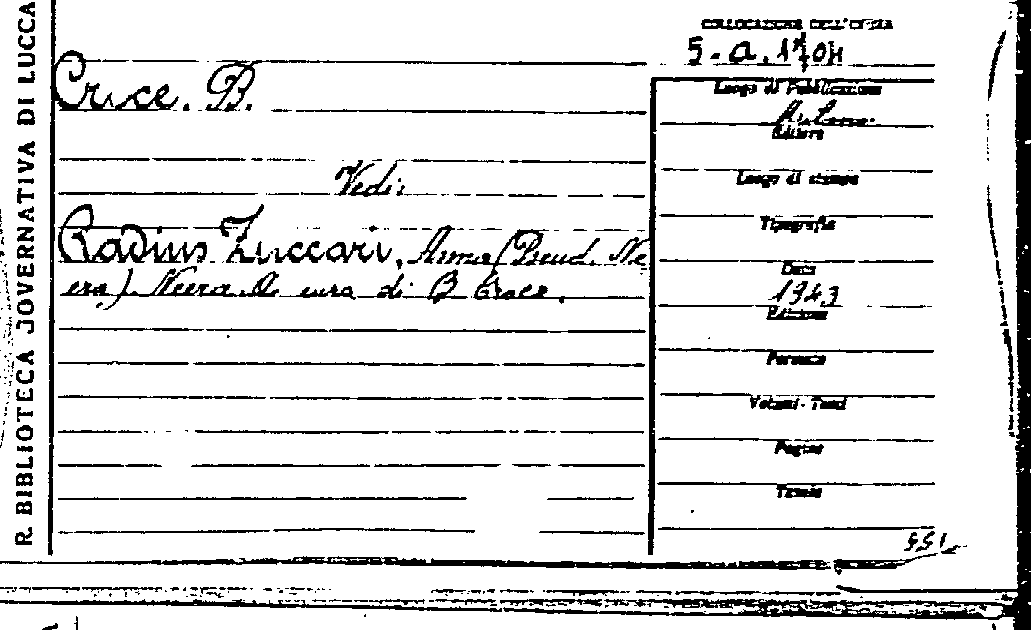 R. BIBLIOTECA JOVERNATIVA DI LUCCA
COLLOCAZIONE DELL'OPERA
5-a.1704
Croce. B.
Vedi:
Radius Zuccari, Anna (Pseud. Ne
era). Neera. A cura di B Croce.
Luogo di Pubblicazione
Milano
Editore
Luogo di stampa
Tipografia
Data
1943
Edizione
Formato
Volumi - Tomi
Pagine
Tavole
155